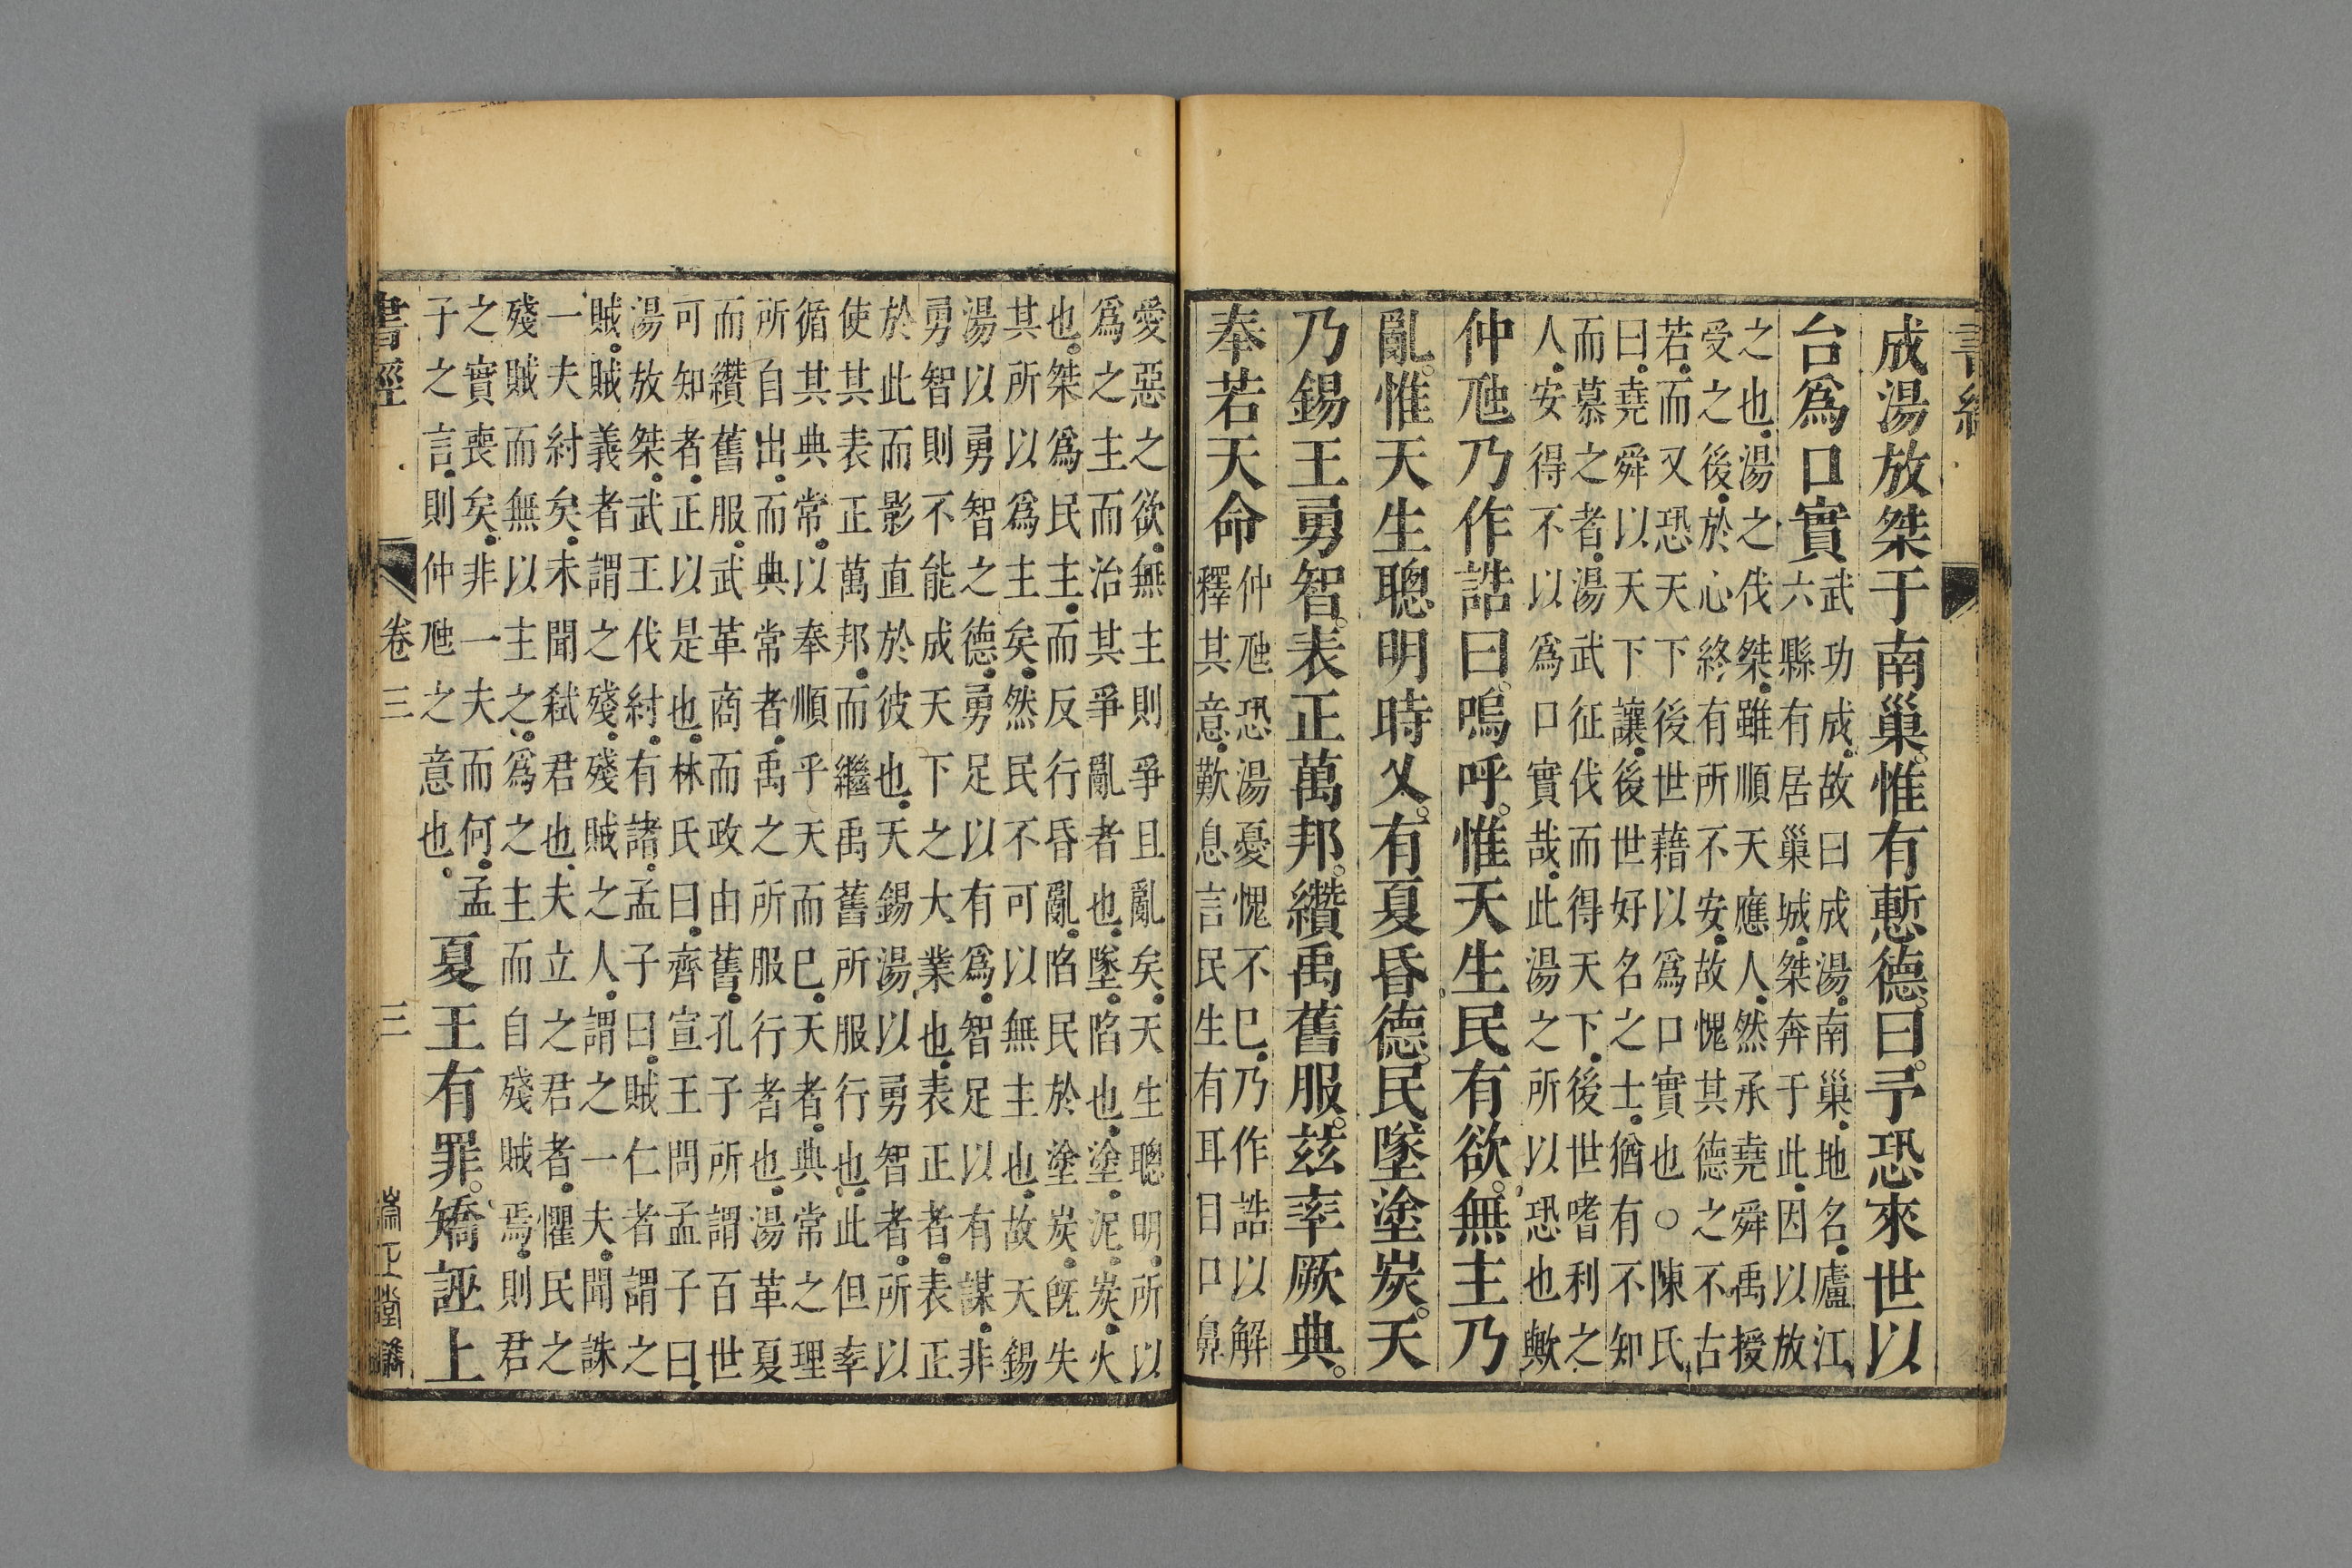 成湯放桀于南巢。惟有慙德。曰。予恐來世以
台爲口實
武功成。故曰成湯。南巢。地名。廬江
六縣有居巢城。桀奔于此。因以放
之也。湯之伐桀。雖順天應人。然承堯舜禹授
受之後。於心終有所不安。故愧其德之不古
若。而又恐天下後世藉以爲口實也○陳氏
曰。堯舜以天下讓。後世好名之士。猶有不知
而慕之者。湯武征伐而得天下。後世嗜利之
人。安得不以爲口實哉。此湯之所以恐也歟
仲虺乃作誥曰。嗚呼。惟天生民有欲。無主乃
亂。惟天生聰明時乂。有夏昏德。民墜塗炭。天
乃錫王勇智。表正萬邦。纘禹舊服。茲率厥典。
奉若天命
仲虺恐湯憂愧不已。乃作誥以解
釋其意。歎息言民生有耳目口鼻
愛惡之欲。無主則爭且亂矣。天生聰明。所以
爲之主而治其爭亂者也。墜。陷也。塗。泥。炭。火
也。桀爲民主。而反行昏亂。陷民於塗炭。旣失
其所以爲主矣。然民不可以無主也。故天錫
湯以勇智之德。勇足以有爲。智足以有謀。非
勇智則不能成天下之大業也。表正者。表正
於此而影直於彼也。天錫湯以勇智者。所以
使其表正萬邦。而繼禹舊所服行也。此但率
循其典常。以奉順乎天而已。天者。典常之理
所自出。而典常者。禹之所服行者也。湯革夏
而纘舊服。武革商而政由舊。孔子所謂百世
可知者。正以是也。林氏曰。齊宣王問孟子曰。
湯放桀。武王伐紂。有諸。孟子曰。賊仁者謂之
賊。賊義者謂之殘。殘賊之人。謂之一夫。聞誅
一夫紂矣。未聞弒君也。夫立之君者。懼民之
殘賊而無以主之。爲之主而自殘賊焉。則君
之實喪矣。非一夫而何。孟
子之言。則仲虺之意也。
夏王有罪。矯誣上
書經 卷三 三